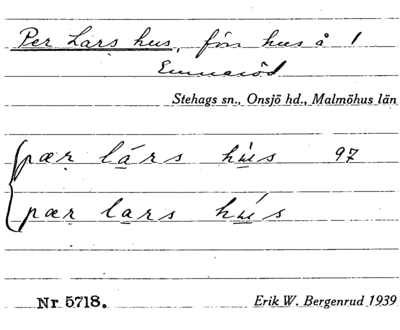 Per Lars hus, förr hus å 1
Emmeröd
Stehags sn., Onsjö hd., Malmöhus län
pæṛ lárs hùs 97
pæṛ lars hús
Nr 5718.
Erik W. Bergenrud 1939